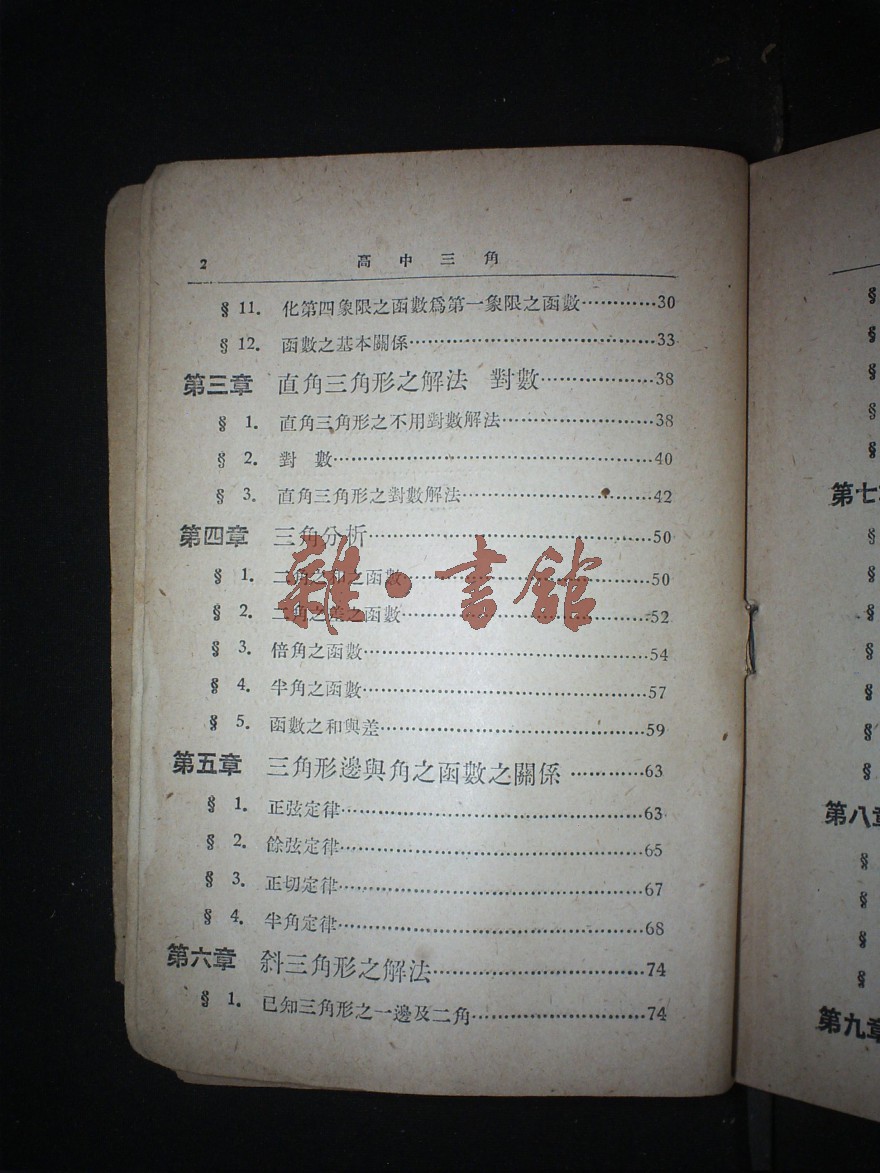 2 高中三角
§ 11. 化第四象限之函數爲第一象限之函數…………30
§ 12. 函數之基本關係…………33
第三章 直角三角形之解法 對數…………38
§ 1. 直角三角形之不用對數解法…………38
§ 2. 對 數…………40
§ 3. 直角三角形之對數解法…………42
第四章 三角分析…………50
§ 1. 二角之和之函數…………50
§ 2. 二角之差之函數…………52
§ 3. 倍角之函數…………54
§ 4. 半角之函數…………57
§ 5. 函數之和與差…………59
第五章 三角形邊與角之函數之關係…………63
§ 1. 正弦定律…………63
§ 2. 餘弦定律…………65
§ 3. 正切定律…………67
§ 4. 半角定律…………68
第六章 斜三角形之解法…………74
§ 1. 已知三角形之一邊及二角…………74
雜·書館
§
§
§
§
§
第七
§
§
§
§
§
§
§
第八章
§
§
§
§
第九章